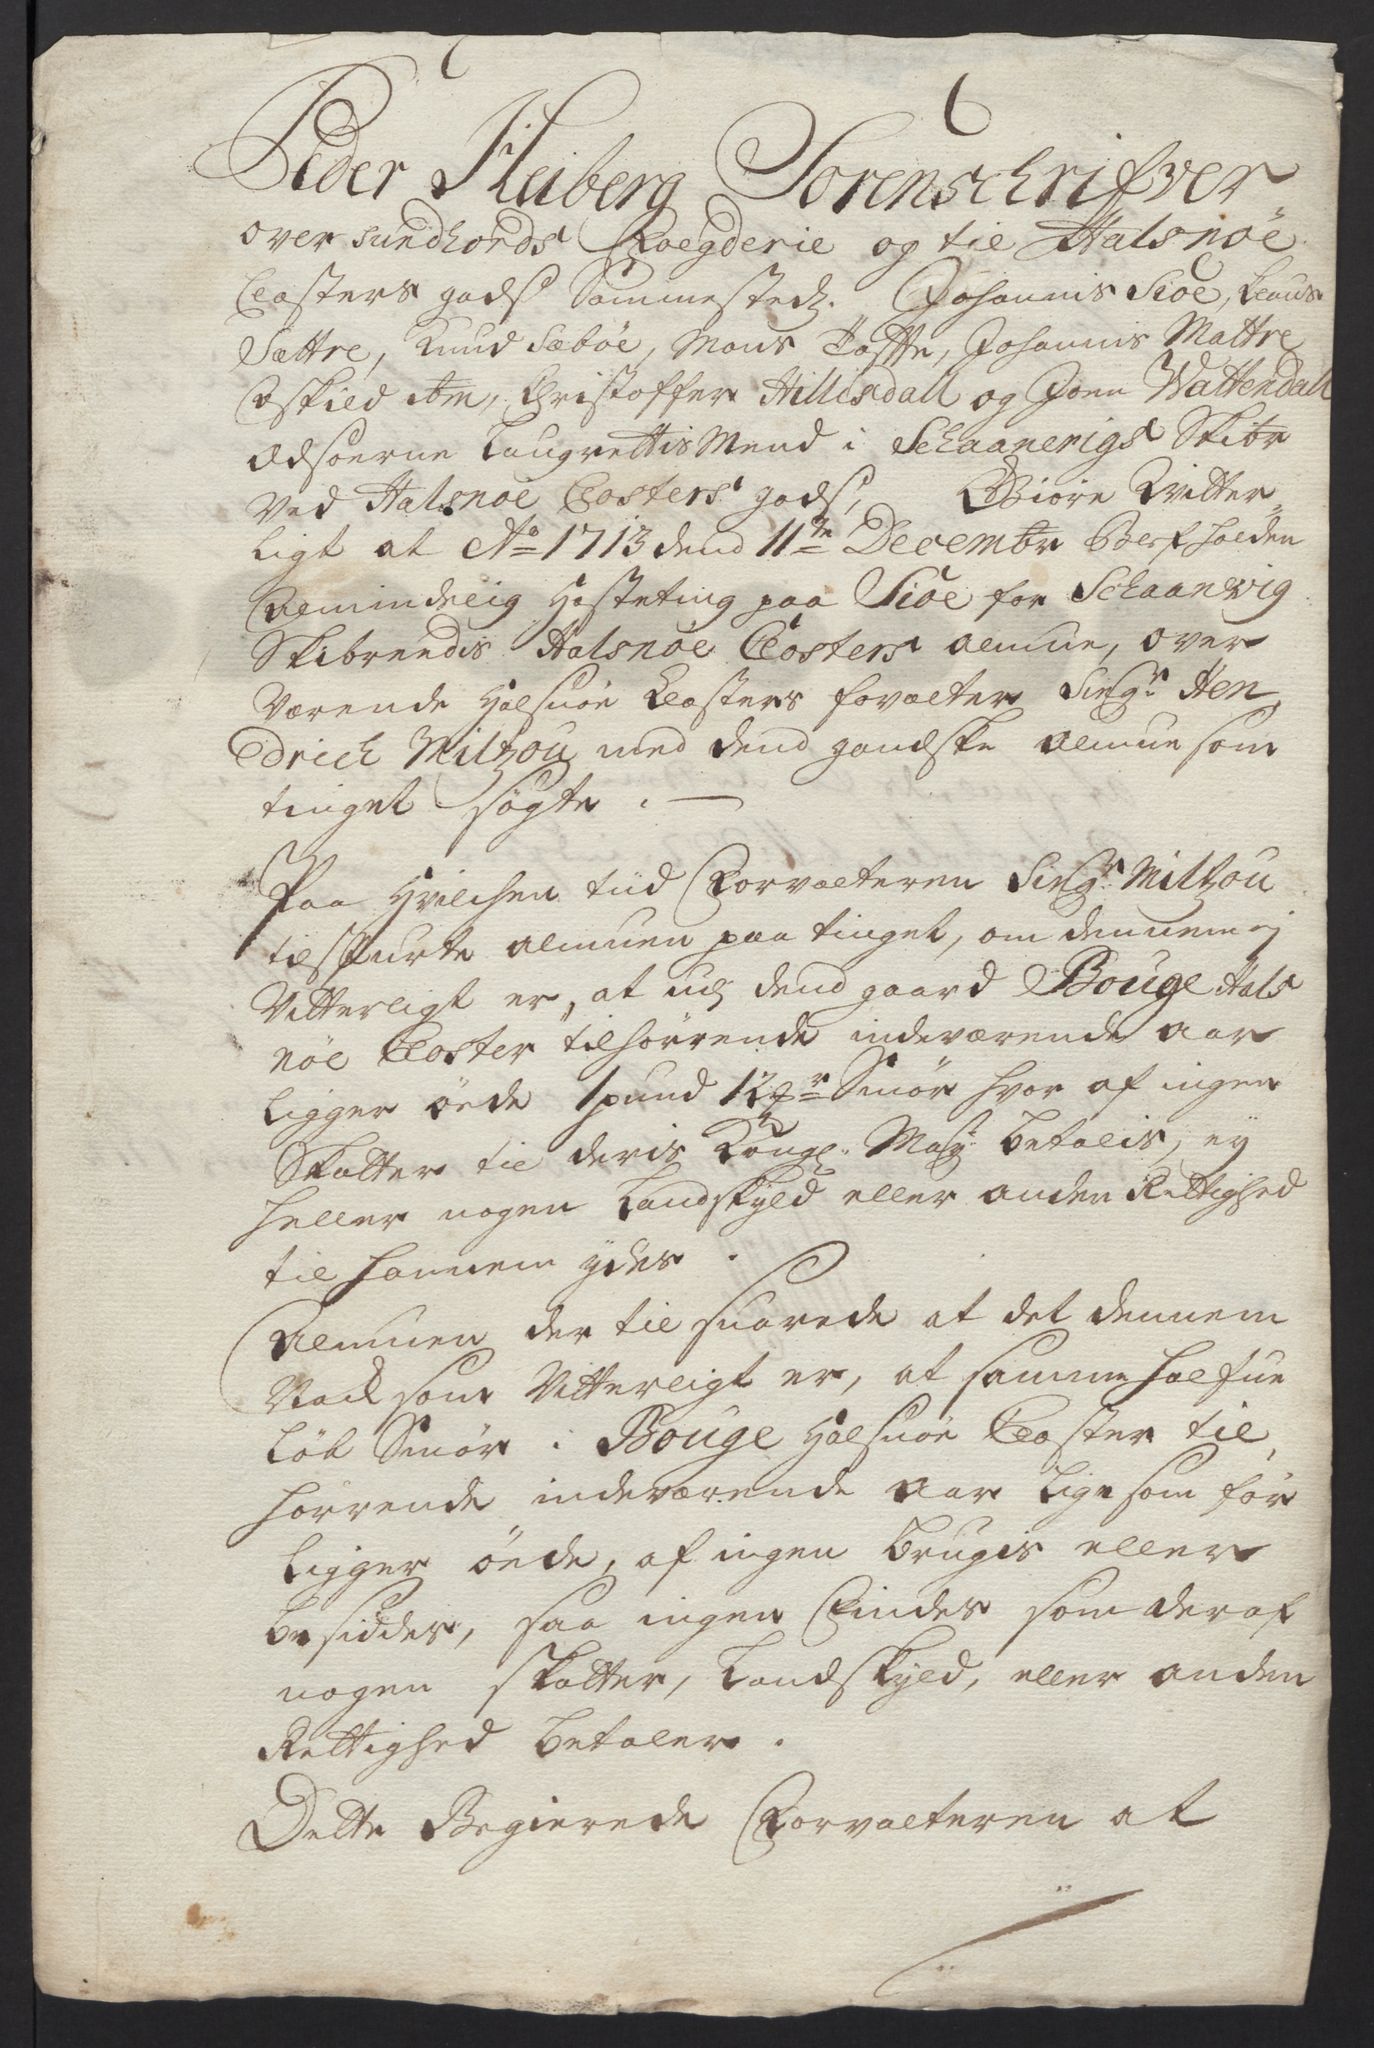 Peder Heiberg Sorenschrifver
over Sundhords Foegderie og til Halsnöe
Closters godß Sammestedtz. Johannis Siöe, Claus
Sættre, Knud Sæböe, Mons Tofte, Johannis Mattre
Eskild Am, Christoffer Hillesdall og Joen Wattendall
Edsoerne Laugrettis Mend i Schaanevigs Skibr
Ved Halsnöe Closters godß, Giöre Vitter
ligt at Ao 1713 dend 11te Decembr blef holden
Almindelig Hösteting paa Siöe for Schaanevig
Skibredis Halsnöe Closters almue, over
Værende Halsnöe Closters forvalter Sigr Hen
drich Miltzou med dend gandske almue som
tinget sögte.
Paa Hvilchen tiid Forvalteren Sigr Miltzou
tilspurte almuen paa tinget, om dennem ej
Vitterligt er, at udj dend gaard Bouge Hals
nöe Closter tilhörende indeværende aar
Ligger öede 1 pund 12 mr Smör hvor af ingen
Skatter til deris Kongl. Mayt betalis, ey
heller nogen Landskyld eller anden Rettighed
til hannem ydes.
Almuen der til svarede at det dennem
Nock som Vitterligt er, at samme halfve
Löb Smör i Bouge Halsnöe Closter til
hörrende indeværende aar lige som för
Ligger öede, af ingen brugis eller
besiddes, saa ingen findes som deraf
nogen skatter, Landskyld, eller anden
Rettighed betaler.
Dette Begierede Forvalteren at